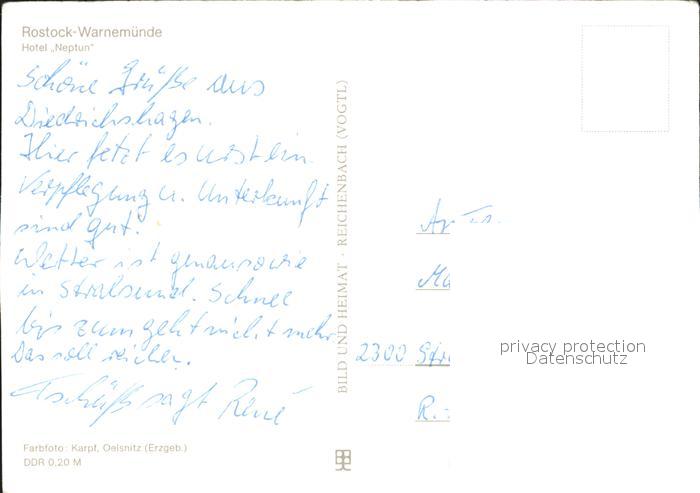 Rostock-Warnemünde
Hotel „Neptun"
Schöne Grüße aus
Diedrichshagen.
Hier fetzt es
Verpflegung u. Unterkunft
sind gut.
Wetter ist genausowie
in Stralsund. Schnee
bis zum geht nicht mehr
Das soll reichen.
Tschüß sagt René
Farbfoto: Karpf, Oelsnitz (Erzgeb.)
DDR 0,20 M
BILD UND HEIMAT · REICHENBACH (VOGTL)
Ma
2300 Str
privacy protection
Datenschutz